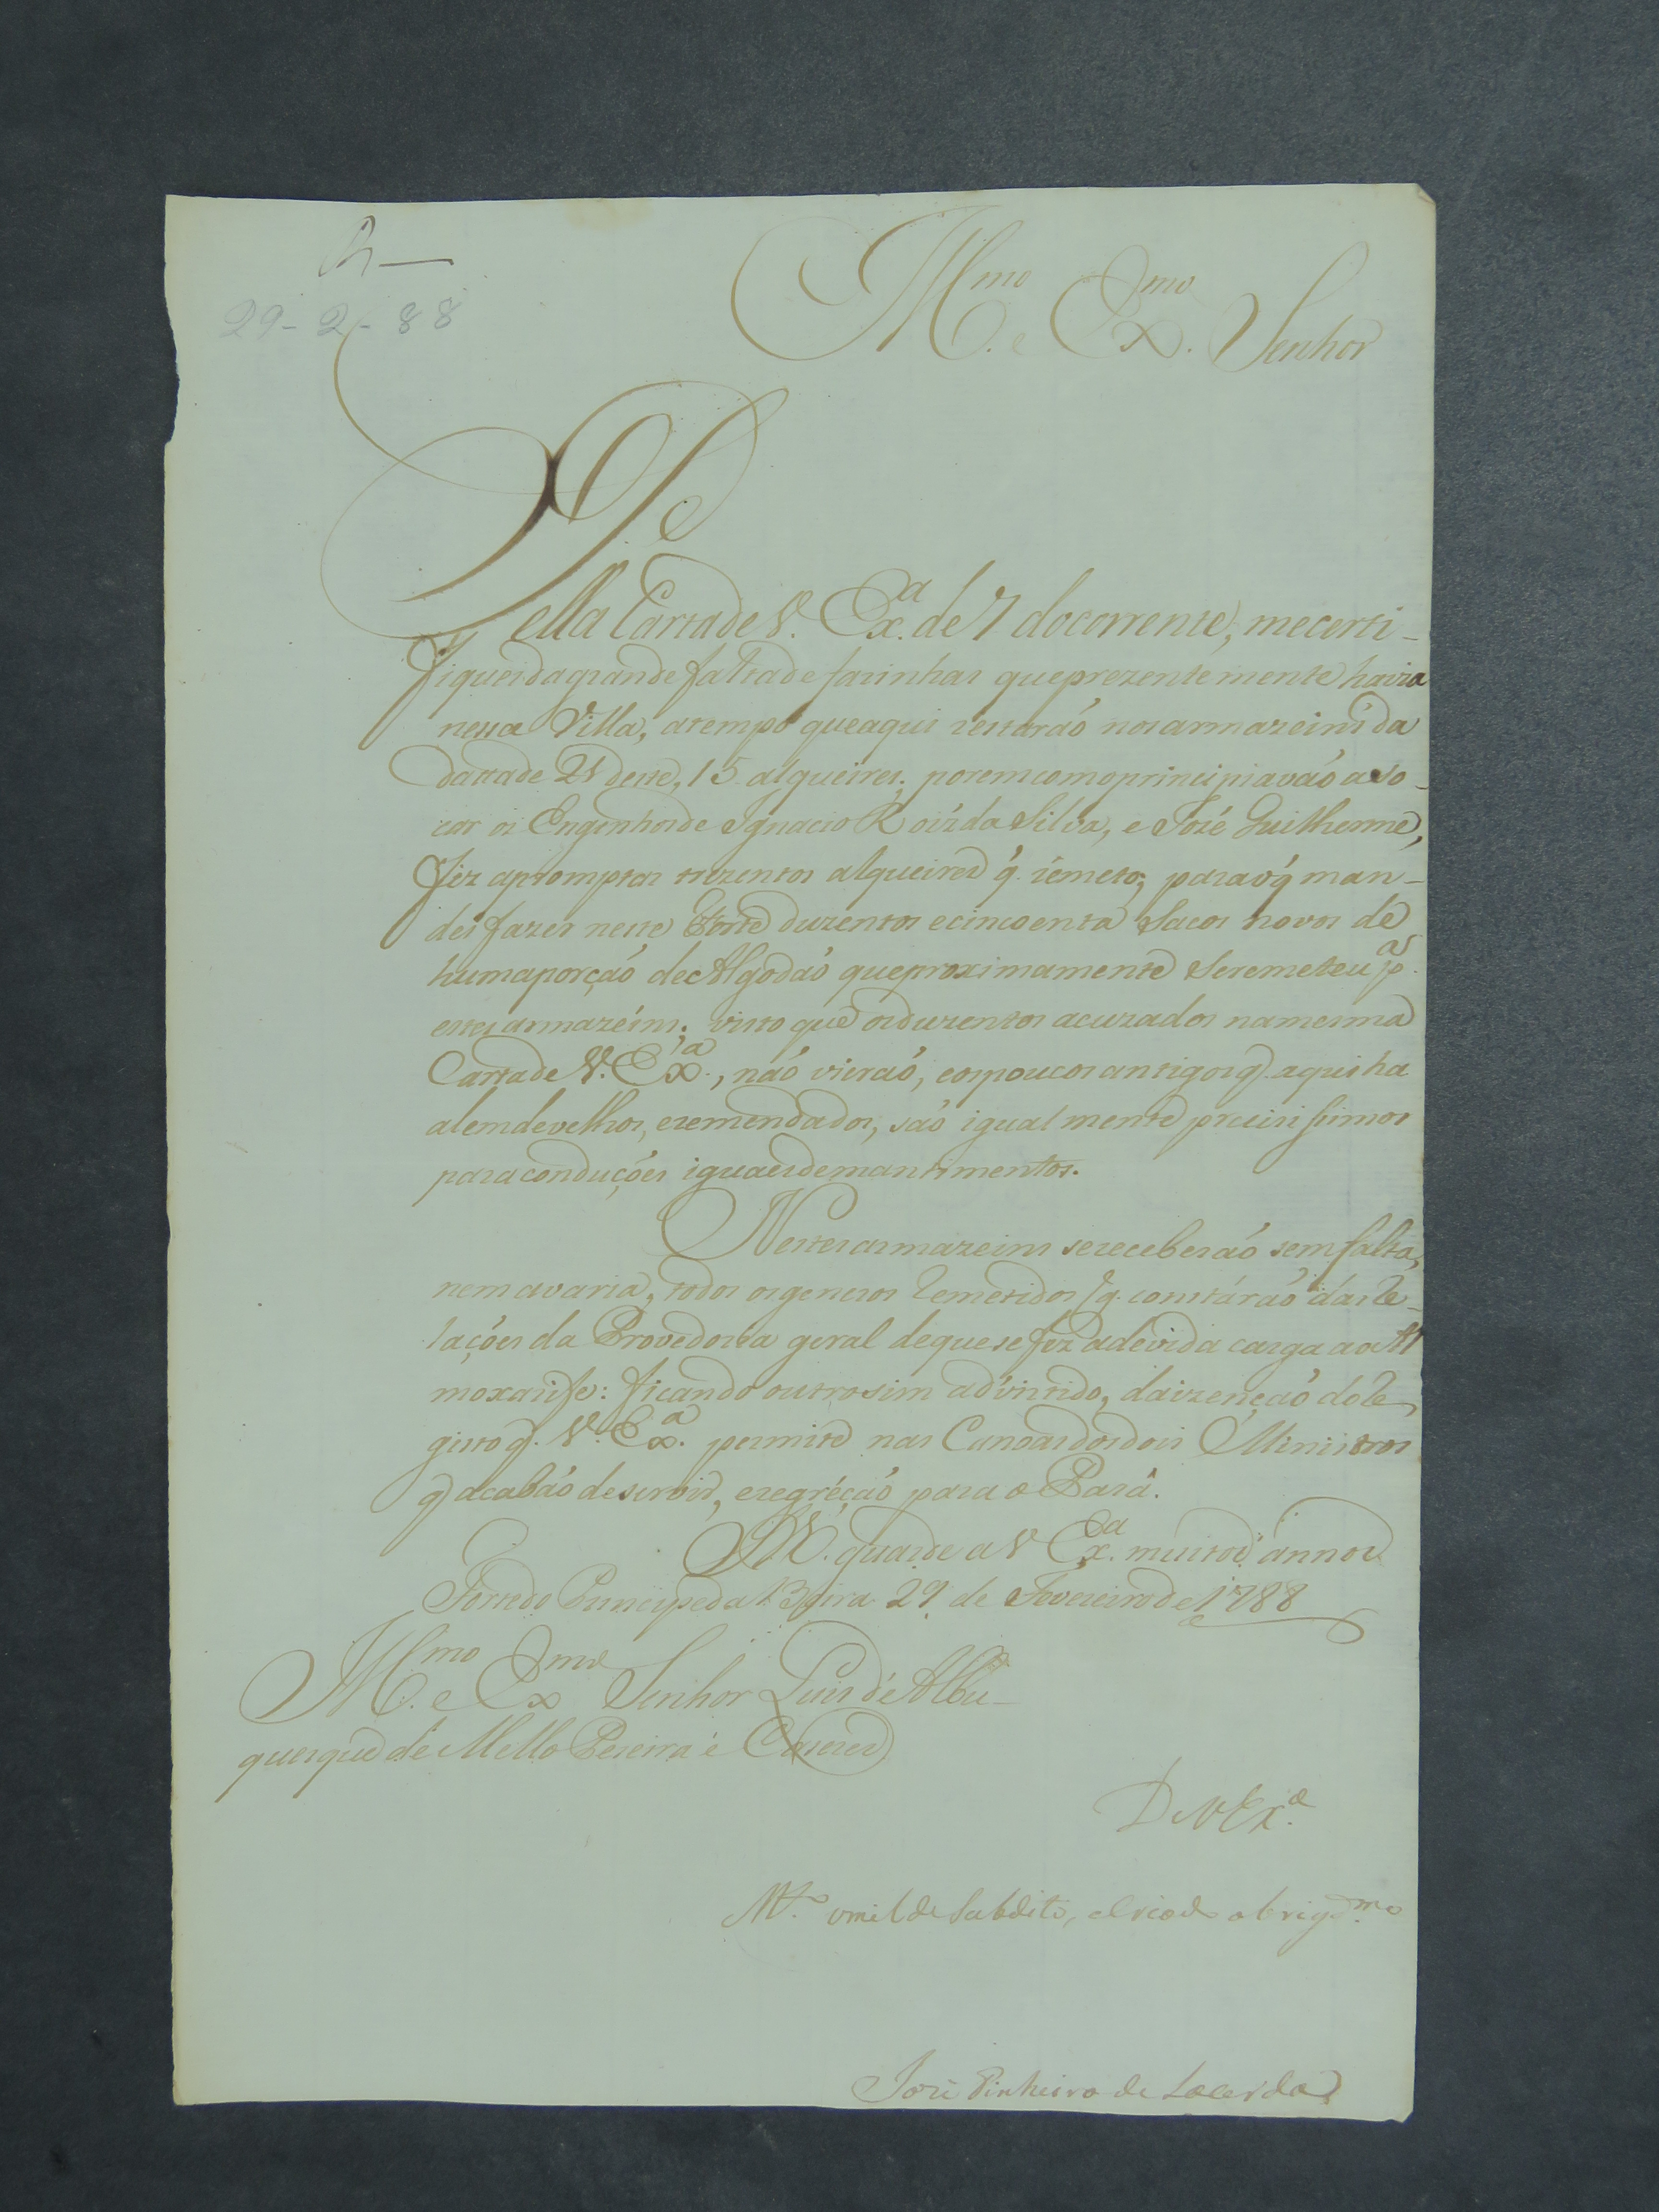 R—
29-2-88
Ill.mo e Ex.mo Senhor
Pella Carta de V. Ex.a de 7 do corrente, me certi-
fiquei da grande falta de farinhas que prezente mente havia
nessa Villa, a tempo que aqui restaráo nos armazeins da
datta de 21 deste, 15 alqueires: porem como principiaváo a so-
car os Engenhos de Ignacio Roiz da Silva, e Jozé Guilherme,
fiz apromptar trezentos alqueires q. remeto; para o q̃ man-
dei fazer neste Forte duzentos e cincoenta Sacos novos de
huma porçáo de Algodáo que proximamente se remeteu p.a
estes armazéins: visto que os duzentos acuzados na mesma
Carta de V. Ex.a, náo vieráo, e os poucos antigos q. aqui ha
alem de velhos, e remendados, sáo igual mente precisissimos
para conduçóes iguaes de mantimentos.
Nestes armazeins se receberáo sem falta,
nem avaria, todos os generos remetidos q. constáráo das re-
laçóes da Provedoria geral de que se fez a devida carga ao Al
moxarife: ficando outro sim advirtido, da izençáo do re-
gisto q. V. Ex.a permite nas Canoas dos dois Ministros
q acabáo de servir, e regréçáo para o Pará.
Ds. guarde a V Ex.a muitos annos.
Forte do Principe da Beira 29 de Fevereiro de 1788
Ill.mo e Ex.mo Senhor Luis de Albu-
querque de Mello Pereira e Caseres
De V Ex.a
M.to umilde Subdito, e criado obrigd.mo
Jozé Pinheiro de Lacerda